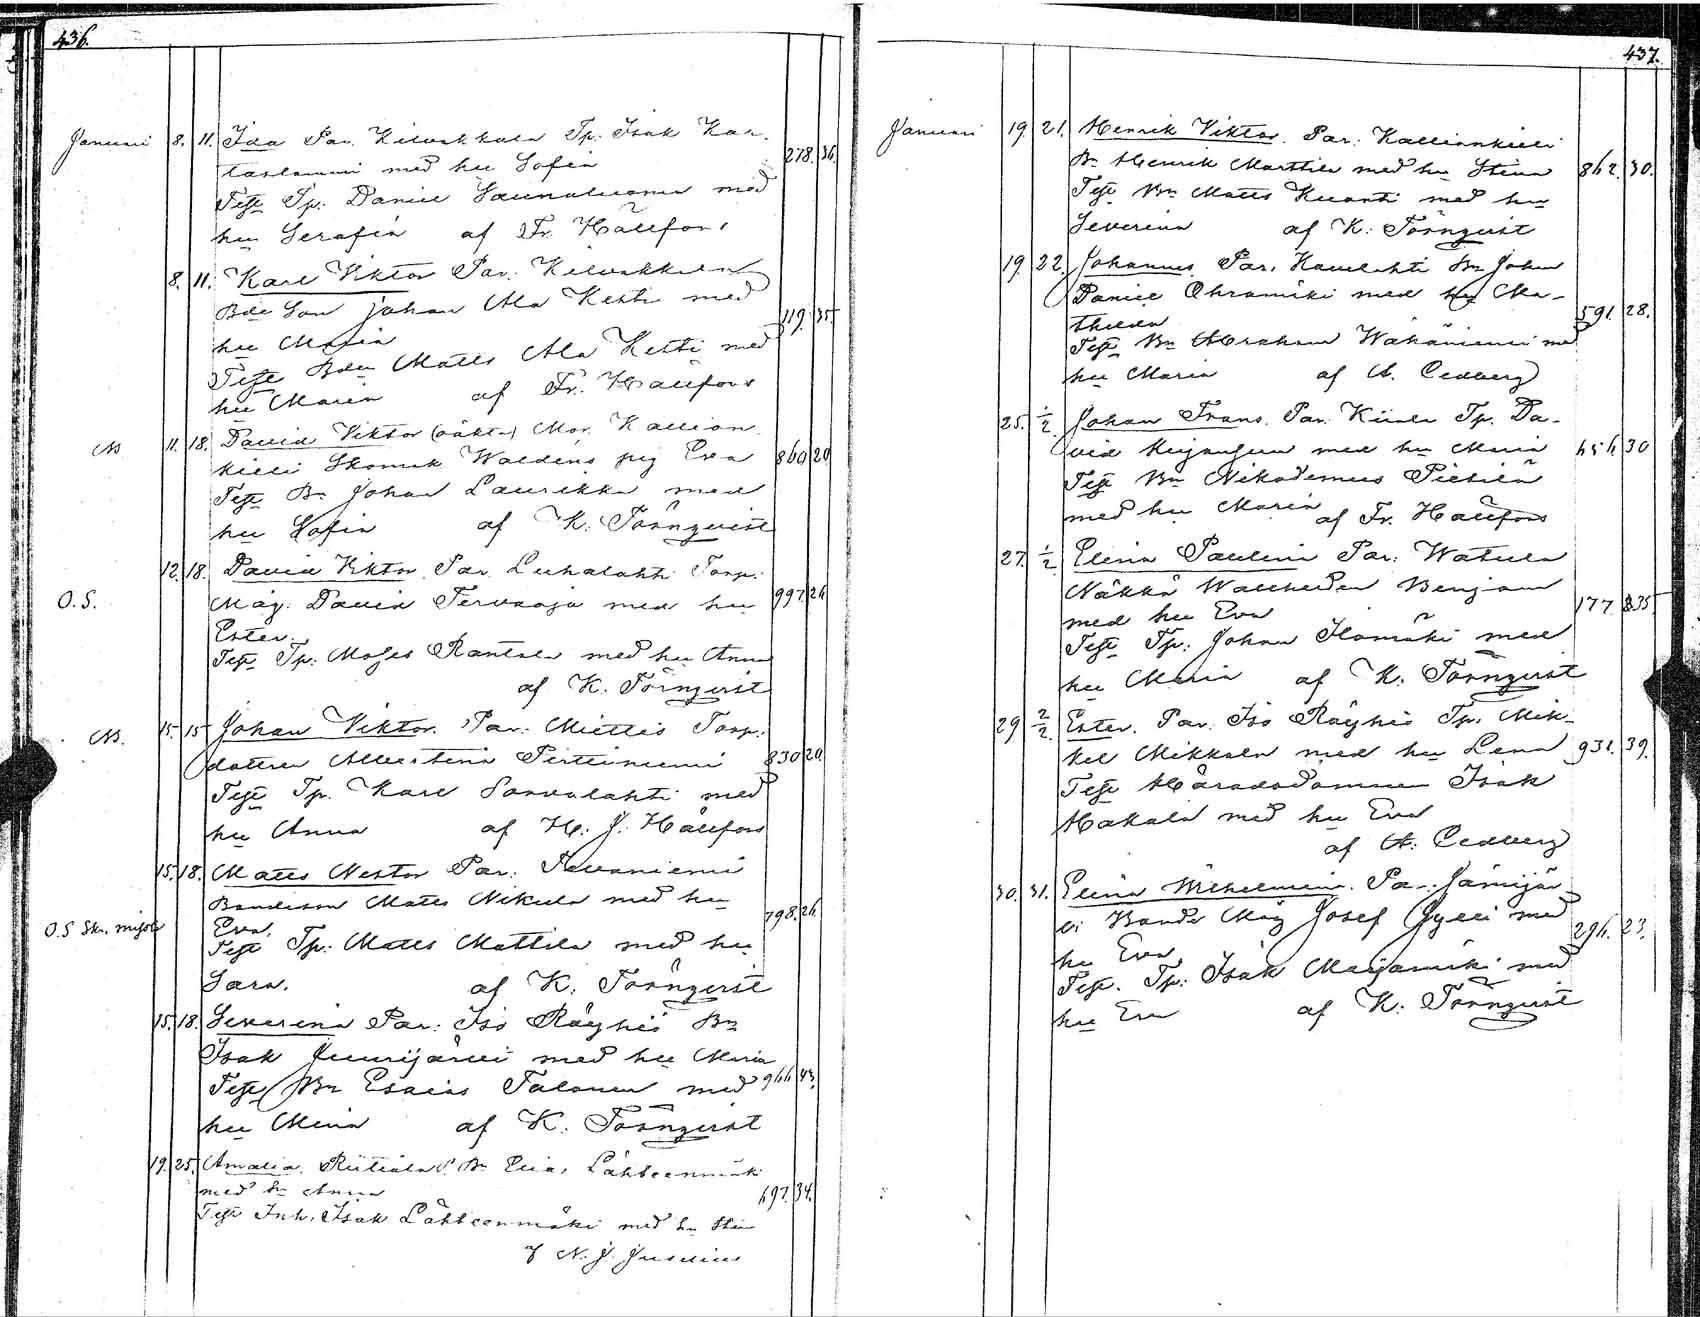 436.
Januari 8. 11. Ida Par. Kilvakkala Tp: Isak Kar-
taslammi med hu Sofia 278. 36.
Teste Tp: Daniel Saunaluoma med
hu Serafia af Fr. Hällfors
8. 11. Karl Viktor Par. Kilvakkala
Bde Son Johan Ala Kesti med
hu Maria 119. 35.
Teste Bden Matts Ala Kesti med
hu Maria af Fr. Hällfors
11. 18. David Viktor (oäkta) Mor. Kallion
kieli Skomak Waldéns pig Eva 860 20
Teste Bn Johan Laurikka med
hu Sofia af K. Törnqvist
O.S. 12. 18. David Viktor Par. Luhalahti Torp:
Måg: David Tervaoja med hu 997. 26
Ester.
Teste Tp: Moses Rantala med hu Anna
af K. Törnqvist
15. 15 Johan Viktor Par: Miettis Torp:
dotren Albertina Pirttiniemi 830 20.
Teste Tp. Karl Sorvalahti med
hu Anna af H. J. Hällfors
15. 18. Matts Nestor Par: Tevaniemi
Bondeson Matts Nikula med hu
O.S Skr. Eva. 798. 26.
Teste Tp: Matts Mattila med hu
Sara. af K. Törnqvist
15. 18. Severina Par: Iso Röyhiö Bn
Isak Juurijärvi med hu Maria
Teste Bn Esaias Talonen med 966 43.
hu Mina af K. Törnqvist
19. 25. Amalia. Riitiala Bn Elia, Lähteenmäki
med hu Anna 697. 34.
Teste Inh. Isak Lähteenmäki med hu Stina
af N. J. Juselius
437.
Januari 19 21. Henrik Viktor. Par: Kallionkieli
Bn Henrik Marttila med hu Stina 862. 30.
Teste Bn Matts Kuanti med hu
Severina af K. Törnqvist
19 22. Johannes. Par. Kauvlahti Bn Johan
Daniel Ohramäki med hu Ma-
thilda 591. 28.
Teste Bn Abraham Wähäniemi med
hu Maria af A. Cedberg
25. 1/2 Johan Frans. Par. Kiiala Tp. Da-
vid med hu Maria 656. 30
Teste Bn Nikodemus Pietilä
med hu Maria af Fr. Hällfors
27. 1/2 Elina Paulina Par: Watula
Näkkä Wallheden Benjam
med hu Eva 177. 35
Teste Tp: Johan Ilomäki med
hu Maria af K. Törnqvist
29 2/2. Ester. Par: Iso Röyhiö Tp. Mik-
kel Mikkola med hu Lena 931. 39.
Teste Häradsdomaren Isak
Hakala med hu Eva
af A. Cedberg
30. 31. Elina Wilhelmina. Par: Jämijär-
vi Bonde Måg Josef Gylli med 296. 23.
hu Eva
Teste. Tp: Isak Marjamäki med
hu Eva af K. Törnqvist